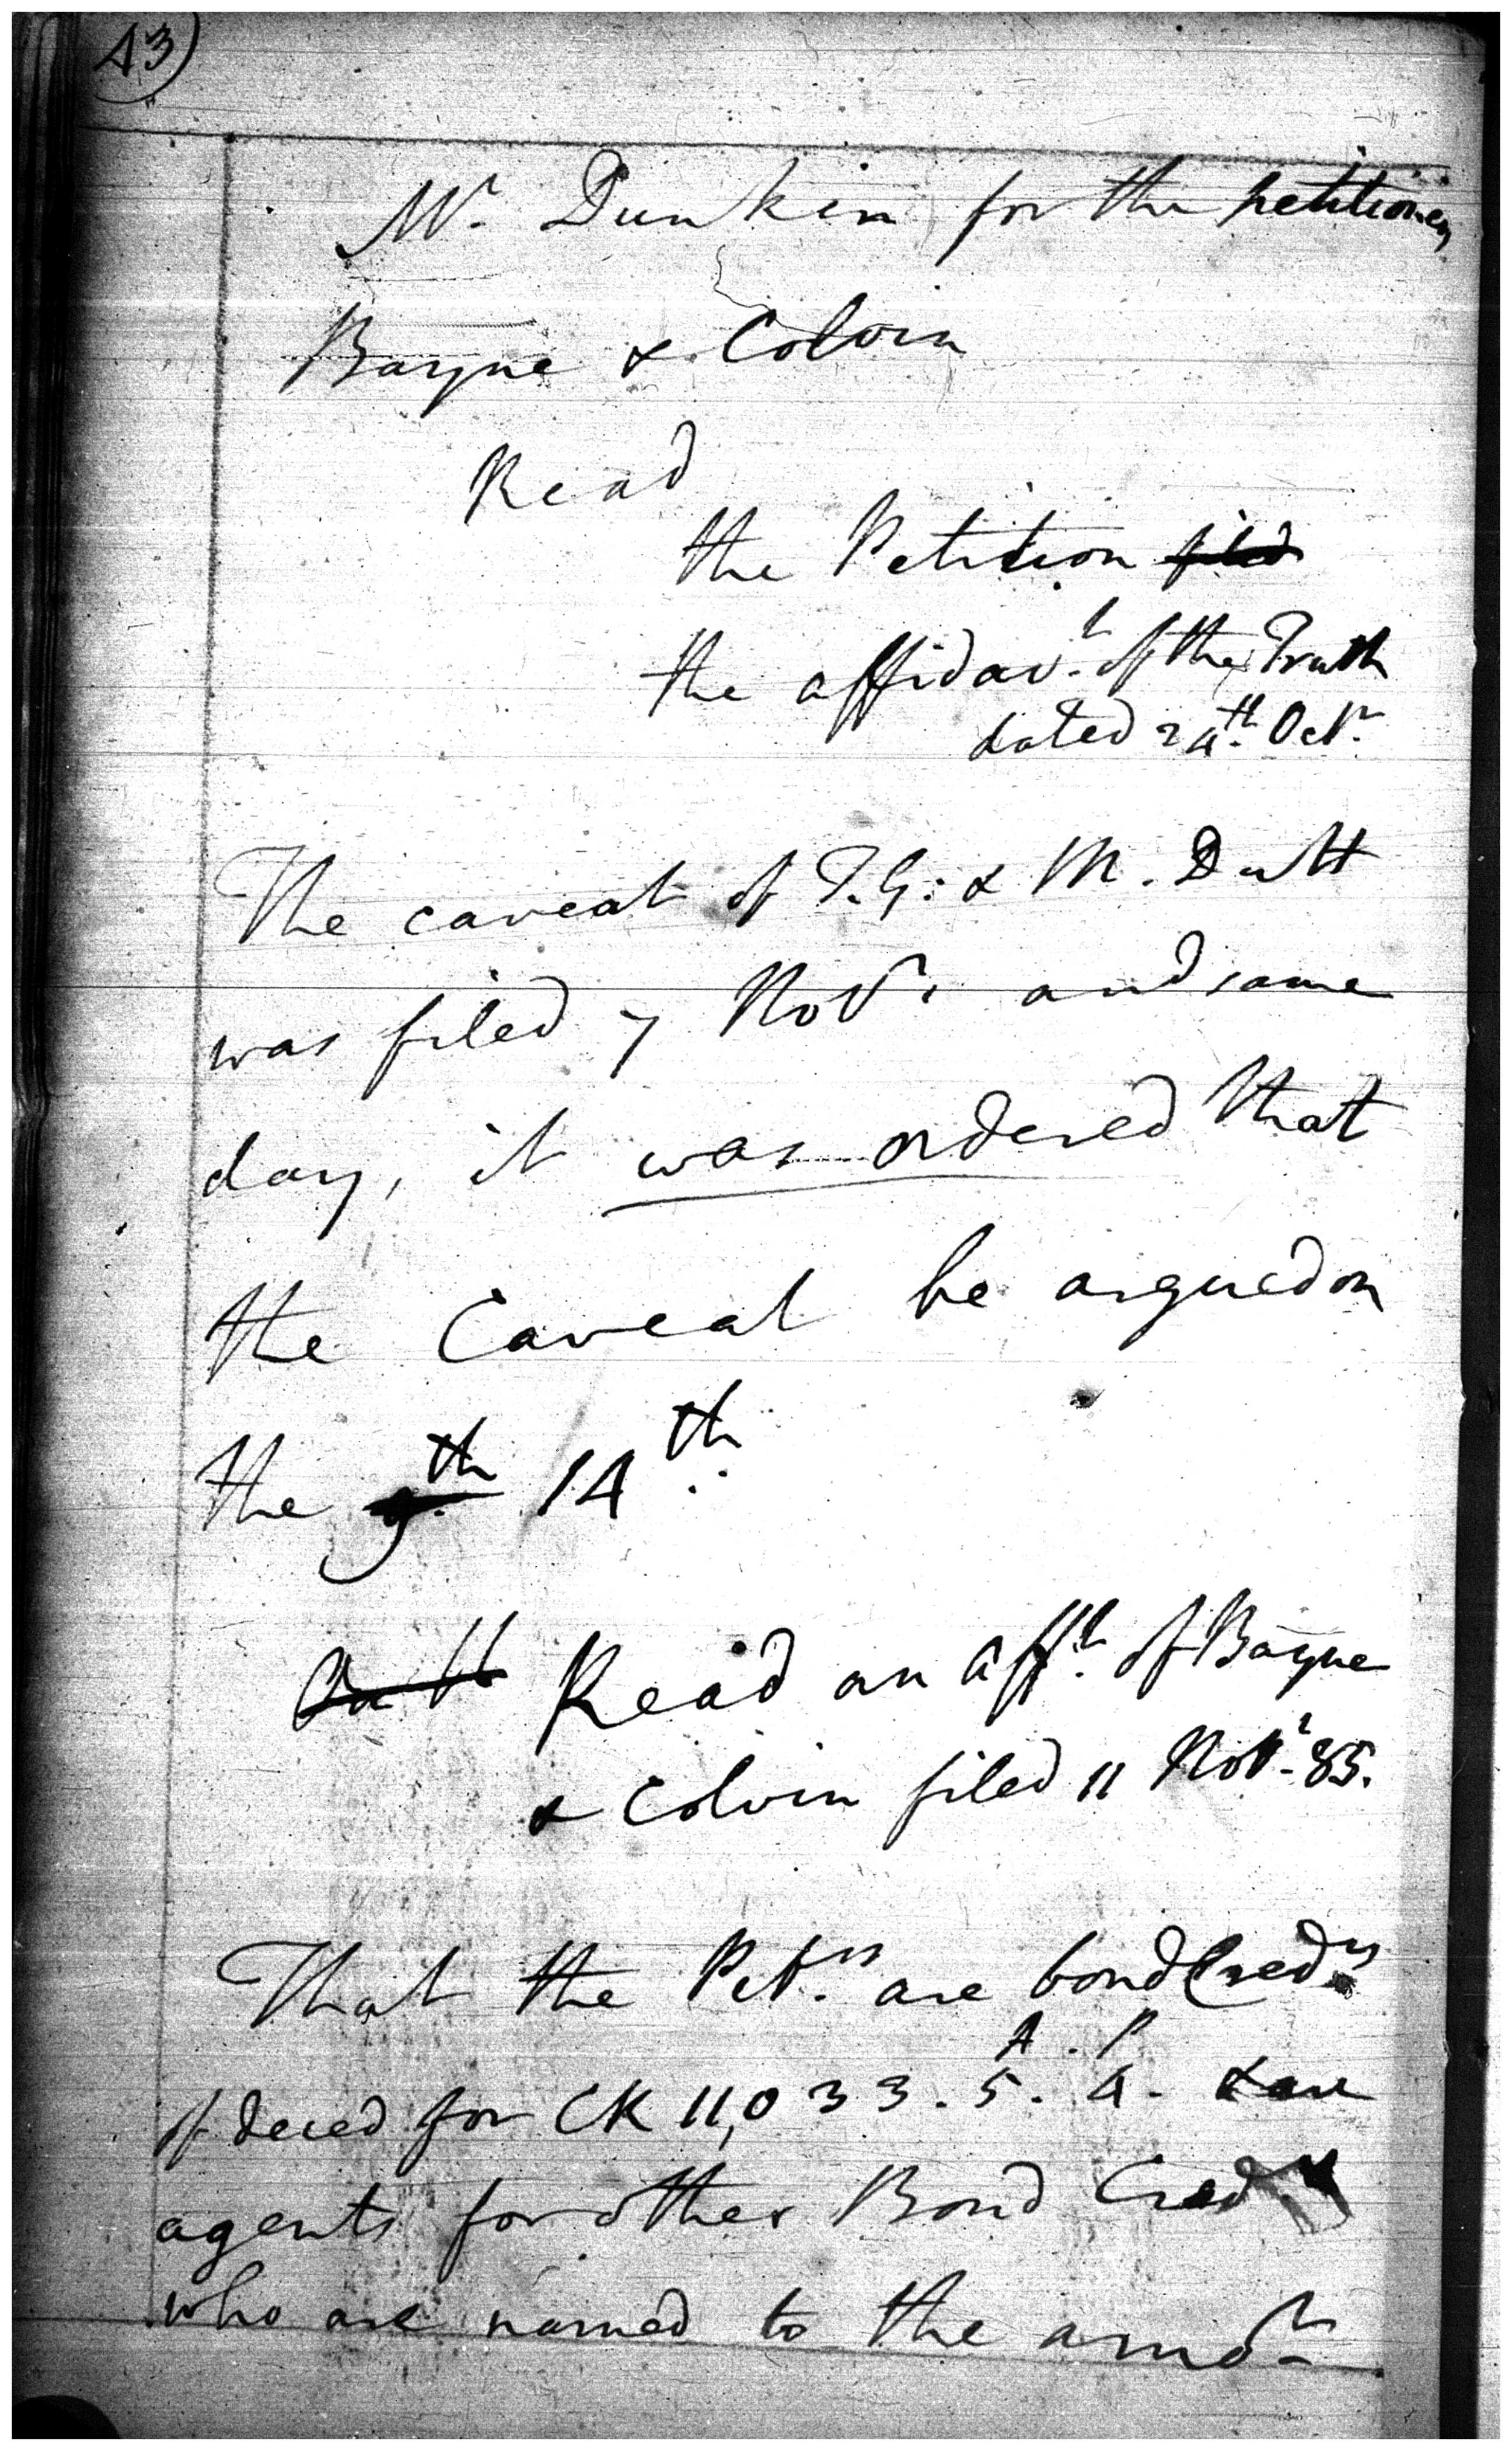 43
Mr. Dunkin for the petitioners
Bayne & Colvin
Read
the Petition filed
the affidavt. of the Truth
dated 24th. Octr.
The caveat of T.G: & M. Dutt
was filed 7 Novr. and same
day, it was ordered that
the Caveat be argued on
the 9th. 14th.
Read an afft. of Bayne
& Colvin filed 11 Novr. 85.
That the Petrs. are bond Credrs
A. P
of deced for CK 11,033. 5. 4. & are
agents for other Bond Cred
who are named to the amot